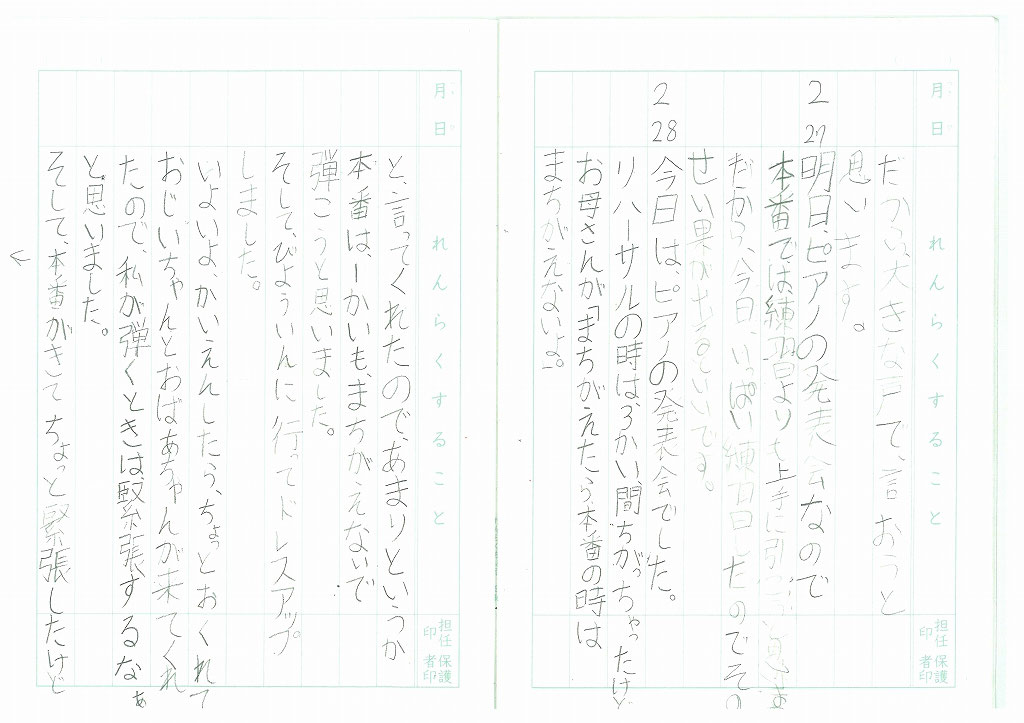 月日 れんらくすること 担任印 保護者印
だから、大きな戸で、言おうと
思います。
2 27 明日、ピアノの発表会なので
本番では練習よりも上手に引
だから、今日、いっぱい練習したのでその
せい果が出るといいです。
2 28 今日は、ピアノの発表会でした。
リハーサルの時は、3かい、間ちがっちゃったけど
お母さんが「まちがえたら、本番の時は
まちがえないよ。」
月日 れんらくすること 担任印 保護者印
と、言ってくれたので、あまりというか
本番は、一かいも、まちがえないで
弾こうと思いました。
そして、びよういんに行ってドレスアップ
しました。
いよいよ、かいえんしたら、ちょっとおくれて
おじいちゃんとおばあちゃんが来てくれ
たので、私が弾くときは、緊張するなぁ
と思いました。
そして、本番がきてちょっと緊張したけど